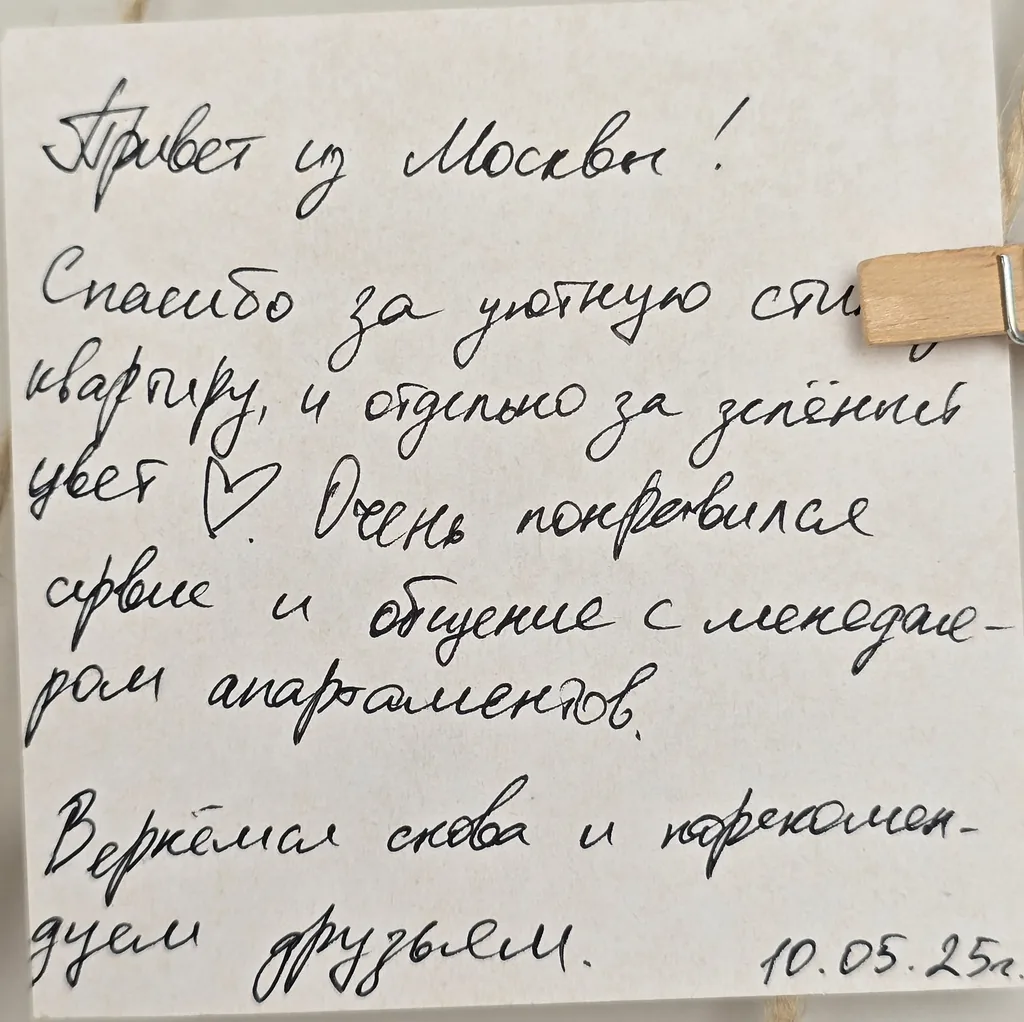 Привет из Москвы!
Спасибо за уютную
квартиру, и отдельно за зелёный
цвет ♡. Очень понравился
сервис и общение с менедже-
ром апартаментов.
Вернёмся снова и порекомен-
дуем друзьям.
10.05.25г.